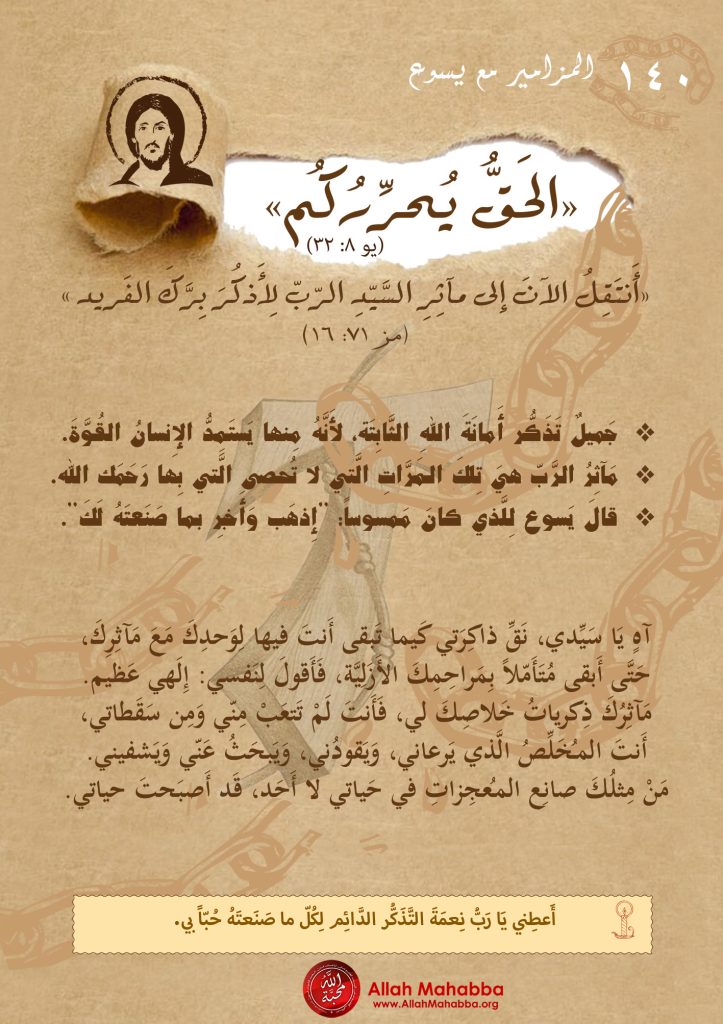 ١٤٠ المزامير مع يسوع
«الحَقُّ يُحرِّرُكُم»
(يو ٨: ٣٢)
«أَنتَقِلُ الآنَ إِلى مآثِرِ السَّيِّدِ الرّبّ لِأَذكُرَ بِرَّكَ الفَريد»
(مز ٧١: ١٦)
❖ جَميلٌ تَذَكُّر أَمانَةَ الله الثَّابِتَة، لأَنَّهُ مِنها يَستَمِدُّ الإِنسانُ القُوَّةَ.
❖ مَآثِرُ الرَّبّ هيَ تِلكَ المَرَّاتِ الَّتي لا تُحصى الَّتي بِها رَحَمَك الله.
❖ قالَ يَسوع لِلَّذي كانَ مَمسوساً: "إِذهَب وَأَخبِر بما صَنَعتَهُ لَكَ".
آهٍ يَا سَيِّدي، نَقِّ ذاكِرَتي كَيما تَبقى أَنتَ فيها لوَحدِكَ مَعَ مَآثِرِكَ،
حَتَّى أَبقى مُتَأَمّلاً بِمَراحِمِكَ الأَزَلِيَّة، فَأَقولَ لِنَفسي: إِلَهي عَظيم.
مَآثِرُكَ ذِكرياتُ خَلاصِكَ لي، فَأَنتَ لَمْ تَتعَبْ مِنّي وَمِن سَقَطاتي،
أَنتَ المـُخَلِّصُ الَّذي يَرعاني، وَيَقودُني، وَيَبحَثُ عَنّي وَيَشفيني.
مَنْ مِثلُكَ صانِع المـُعجِزاتِ في حَياتي لا أَحَد، قَد أَصبَحتَ حياتي.
أَعطِني يَا رَبُّ نِعمَةَ التَّذَكُّر الدَّائِم لِكُلّ ما صَنَعتَهُ حُبّاً بي.
الله محبّة
Allah Mahabba
www.AllahMahabba.org